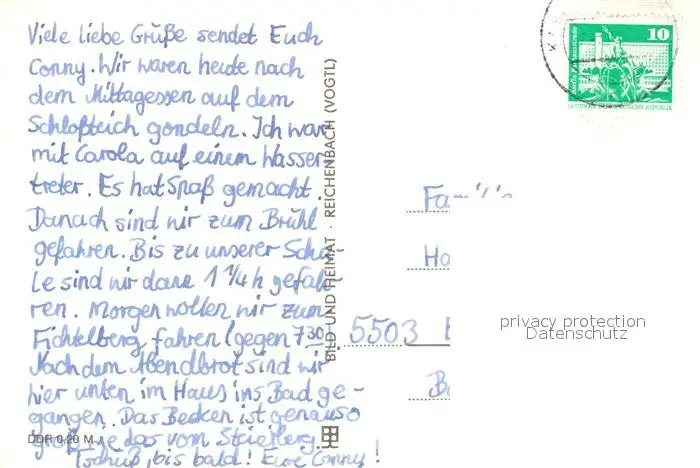 Viele liebe Grüße sendet Euch
Conny. Wir waren heute nach
dem Mittagessen auf dem
Schloßteich gondeln. Ich war
mit Carola auf einem Wasser-
treter. Es hat Spaß gemacht.
Danach sind wir zum Brühl
gefahren. Bis zu unserer Schu-
le sind wir dann 1 1/4 h gefah-
ren. Morgen wollen wir zum
Fichtelberg fahren (gegen 7 30.
Nach dem Abendbrot sind wir
hier unten im Haus ins Bad ge-
gangen. Das Becken ist genauso
groß wie das vom Steigerg.
Tschüß, bis bald! Eure Conny!
DDR 0,20 M
BILD UND HEIMAT · REICHENBACH (VOGTL)
10
DEUTSCHE DEMOKRATISCHE REPUBLIK
Fa
Ha
5503
privacy protection
Datenschutz